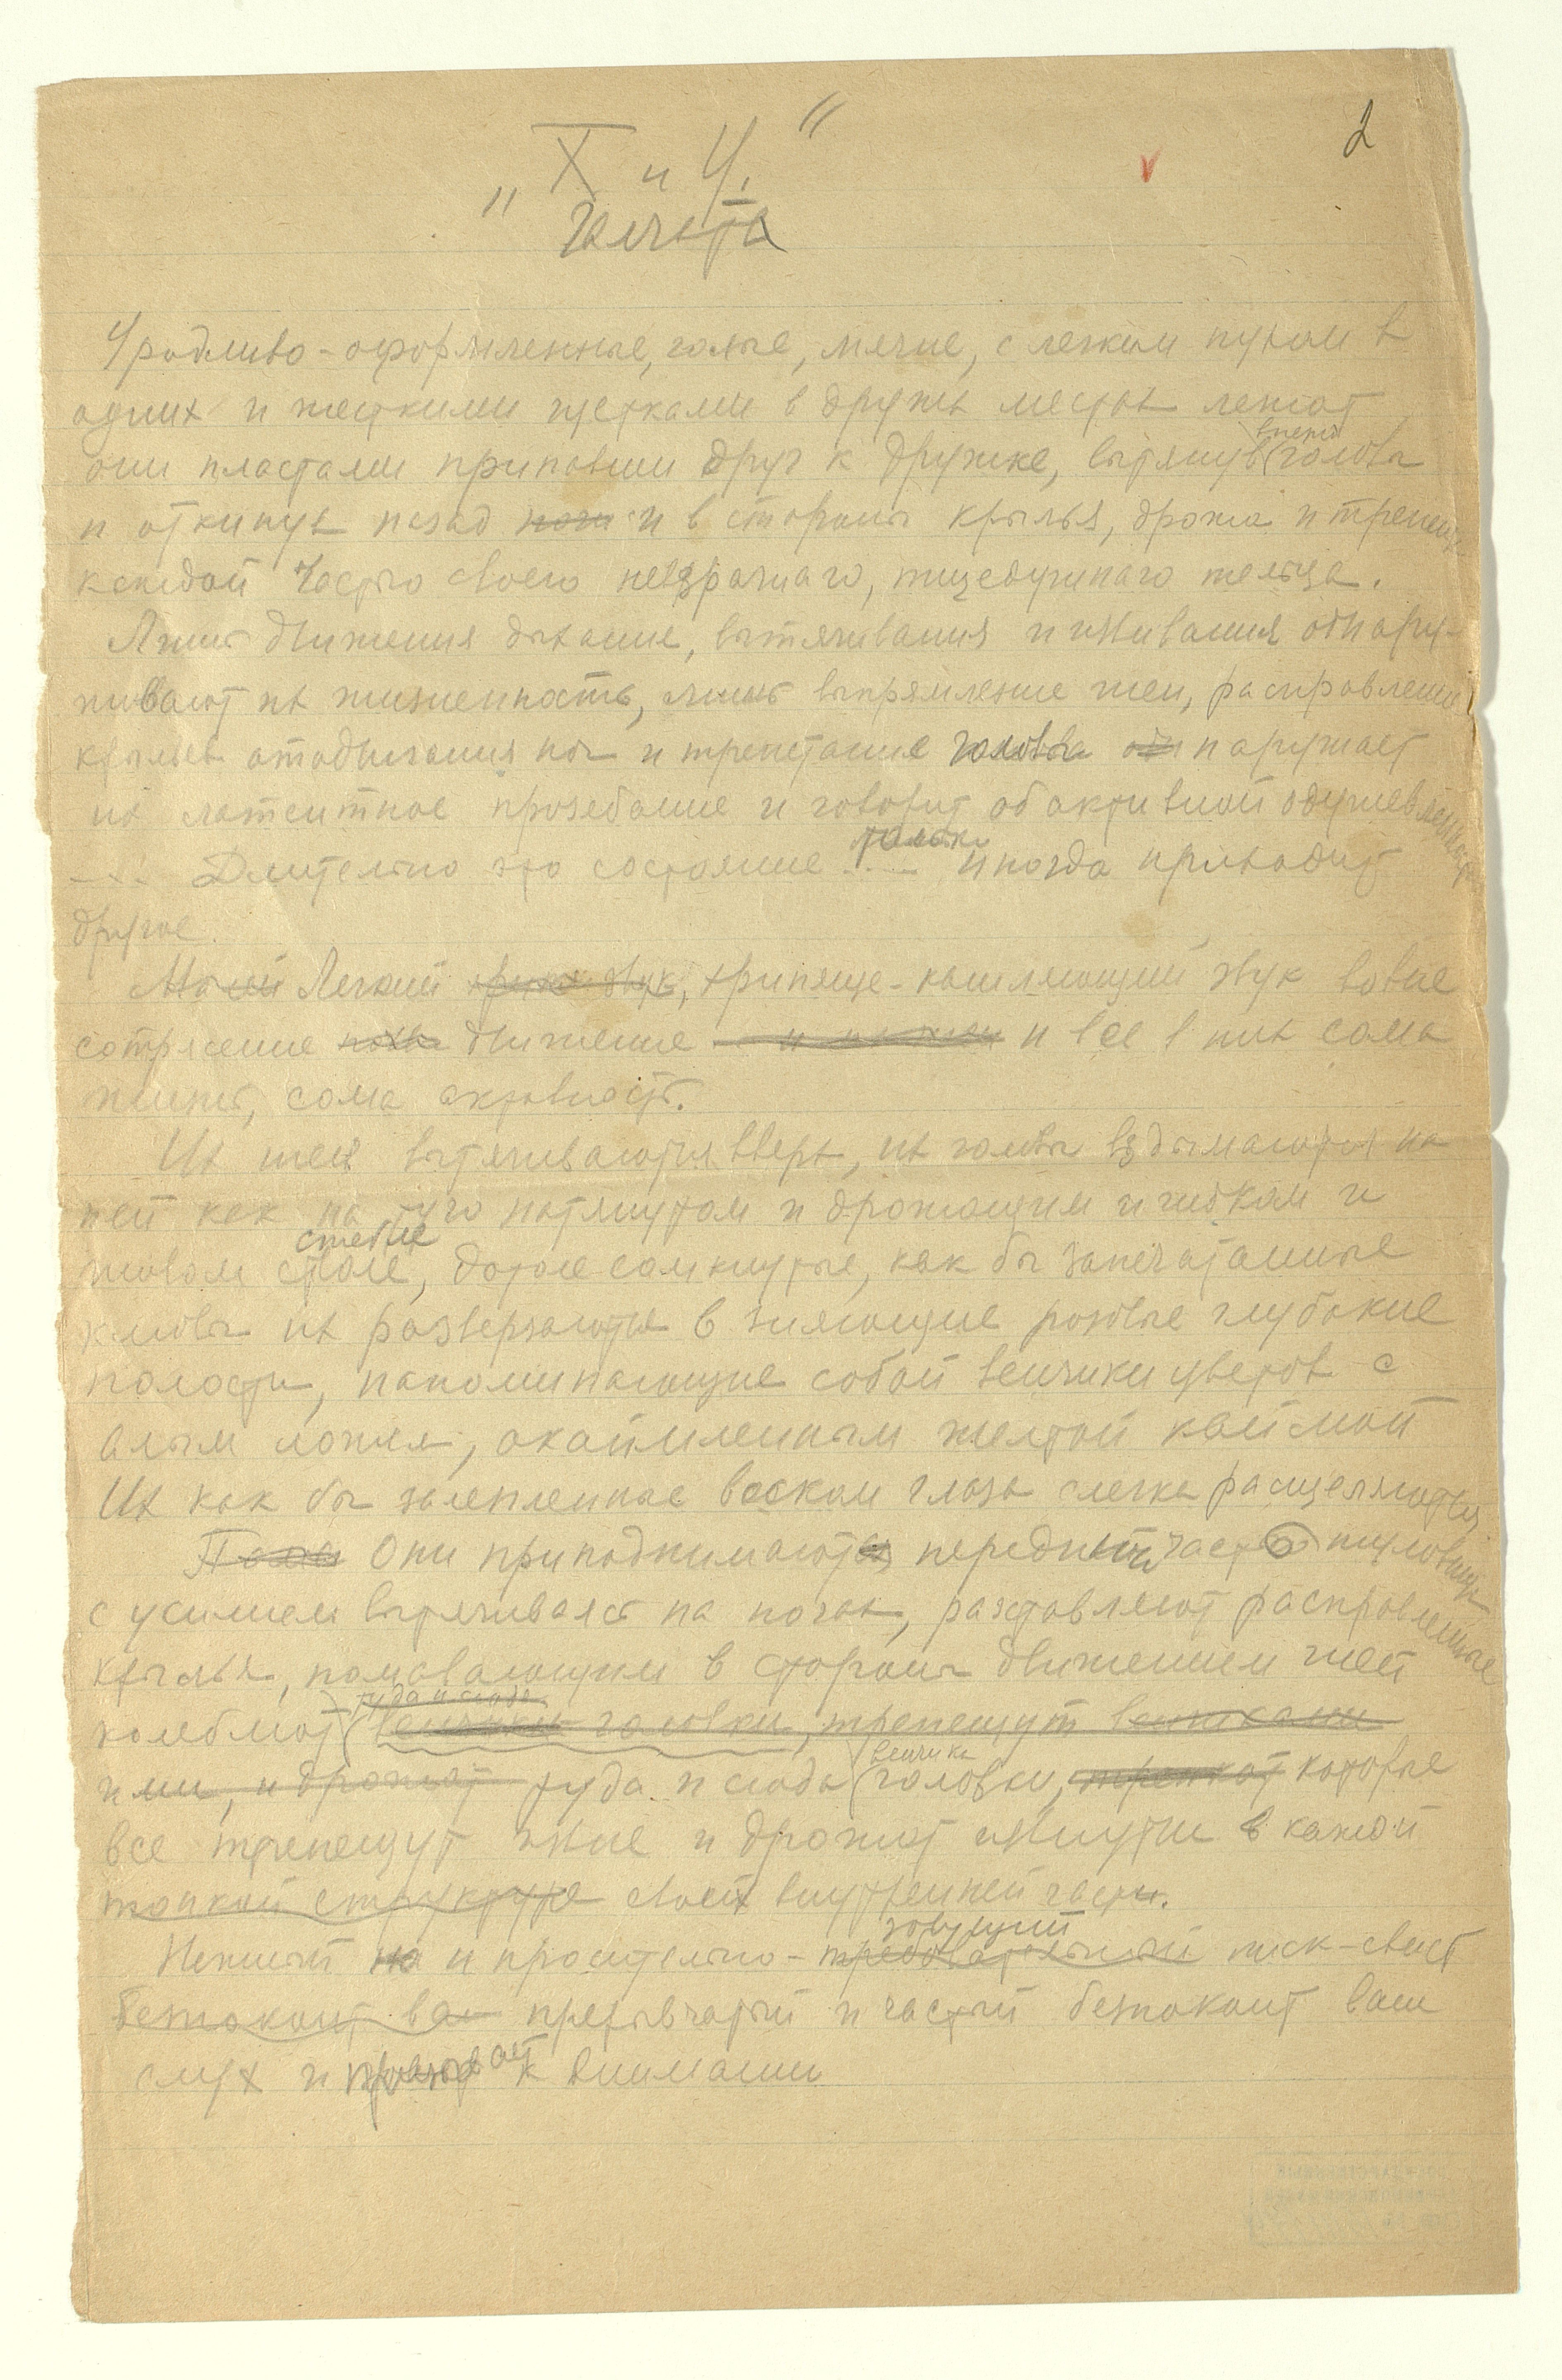 2
„Х и У.“
Галчата
Уродливо-оформленные, голые, мягкие, с легким пухом в
одних и жесткими щетками в других местах лежат
они пластами припавши друг к дружке, вытянув вперед головы
и откинув назад ноги и в стороны крылья, дрожа и трепеща
каждой частью своего невзрачного, тщедушного тельца.
Лишь движения дыхание, вытягивания и изгивания обнару-
живают их жизненность, лишь выпрямление шеи, расправление
крыльев отодвигания ног и трепетание головы об нарушает
их латентное прозебание и говорит об активной одушевленности
Длительно это состояние только иногда приходит
другое.
Малый Легкий крик звук, хрипяще-кашляющий звук вовне
сотрясение движение и и все в них сама
жизнь, сама активность.
Их шеи вытягиваются вверх, их головы вздымаются на
ней как на туго натянутом и дрожащем и гибком и
живом стволе стебле, дотоле сомкнутые, как бы запечатанные
клювы их разверзаются в зияющие розовые глубокие
полости, напоминающие собой венчики цветов с
алым ложем, окаймленным желтой каймой
Их как бы залепленные воском глаза слегка расщеляются
Они приподнимаются передней частью туловища
с усилием вытягиваясь на ногах, раставляют расправленные
крылья, помавающим в стороны движением шей
колеблют туда и сюда венчики головки, трепещут венчиками
ими, и дрожат туда и сюда венчики головки, трепещут которые
все трепещут извне и дрожат изнутри в каждой
тонкой структуре своей внутренней части.
Нежный на и просительно-требовательный зовущий писк-свист
безпокоит ваш прерывчатый и частый безпокоит ваш
слух и призывает к вниманию